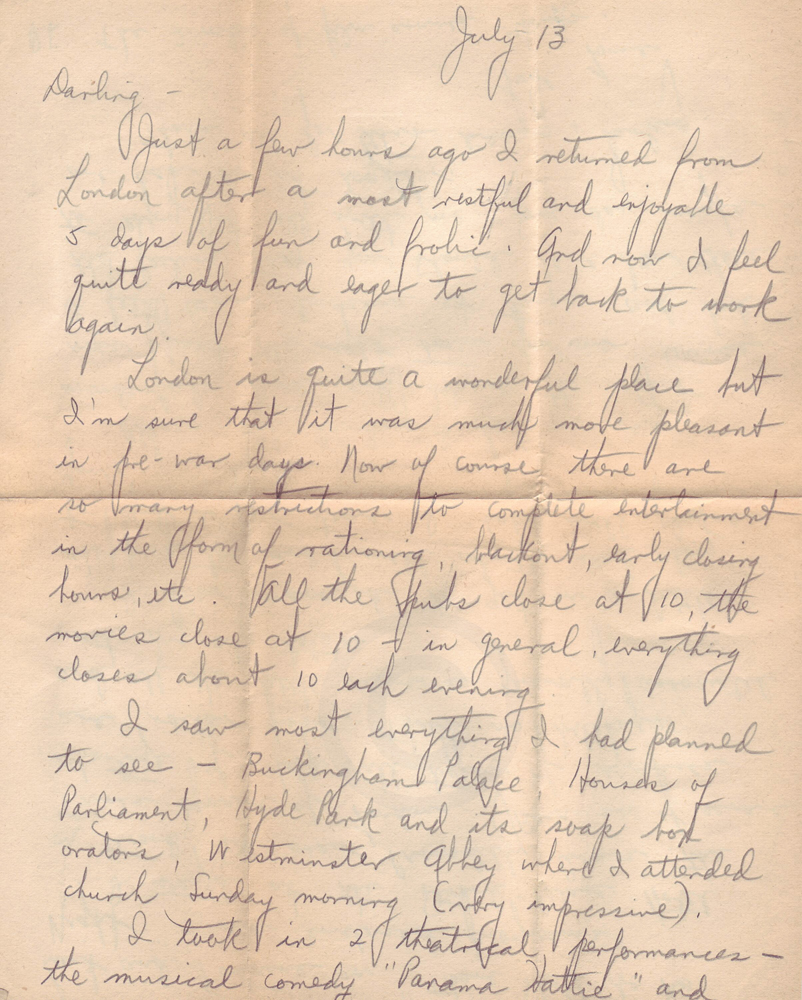 July 13
Darling -
Just a few hours ago I returned from
London after a most restful and enjoyable
5 days of fun and frolic. And now I feel
quite ready and eager to get back to work
again.
London is quite a wonderful place but
I'm sure that it was much more pleasant
in pre-war days. Now of course there are
so many restrictions to complete entertainment
in the form of rationing, blackout, early closing
hours, etc. All the pubs close at 10, the
movies close at 10 - in general, everything
closes about 10 each evening.
I saw most everything I had planned
to see - Buckingham Palace, Houses of
Parliament, Hyde Park and its soap box
orators, Westminster Abbey where I attended
church Sunday morning (very impressive).
I took in 2 theatrical performances -
the musical comedy "Panama Hattie" and